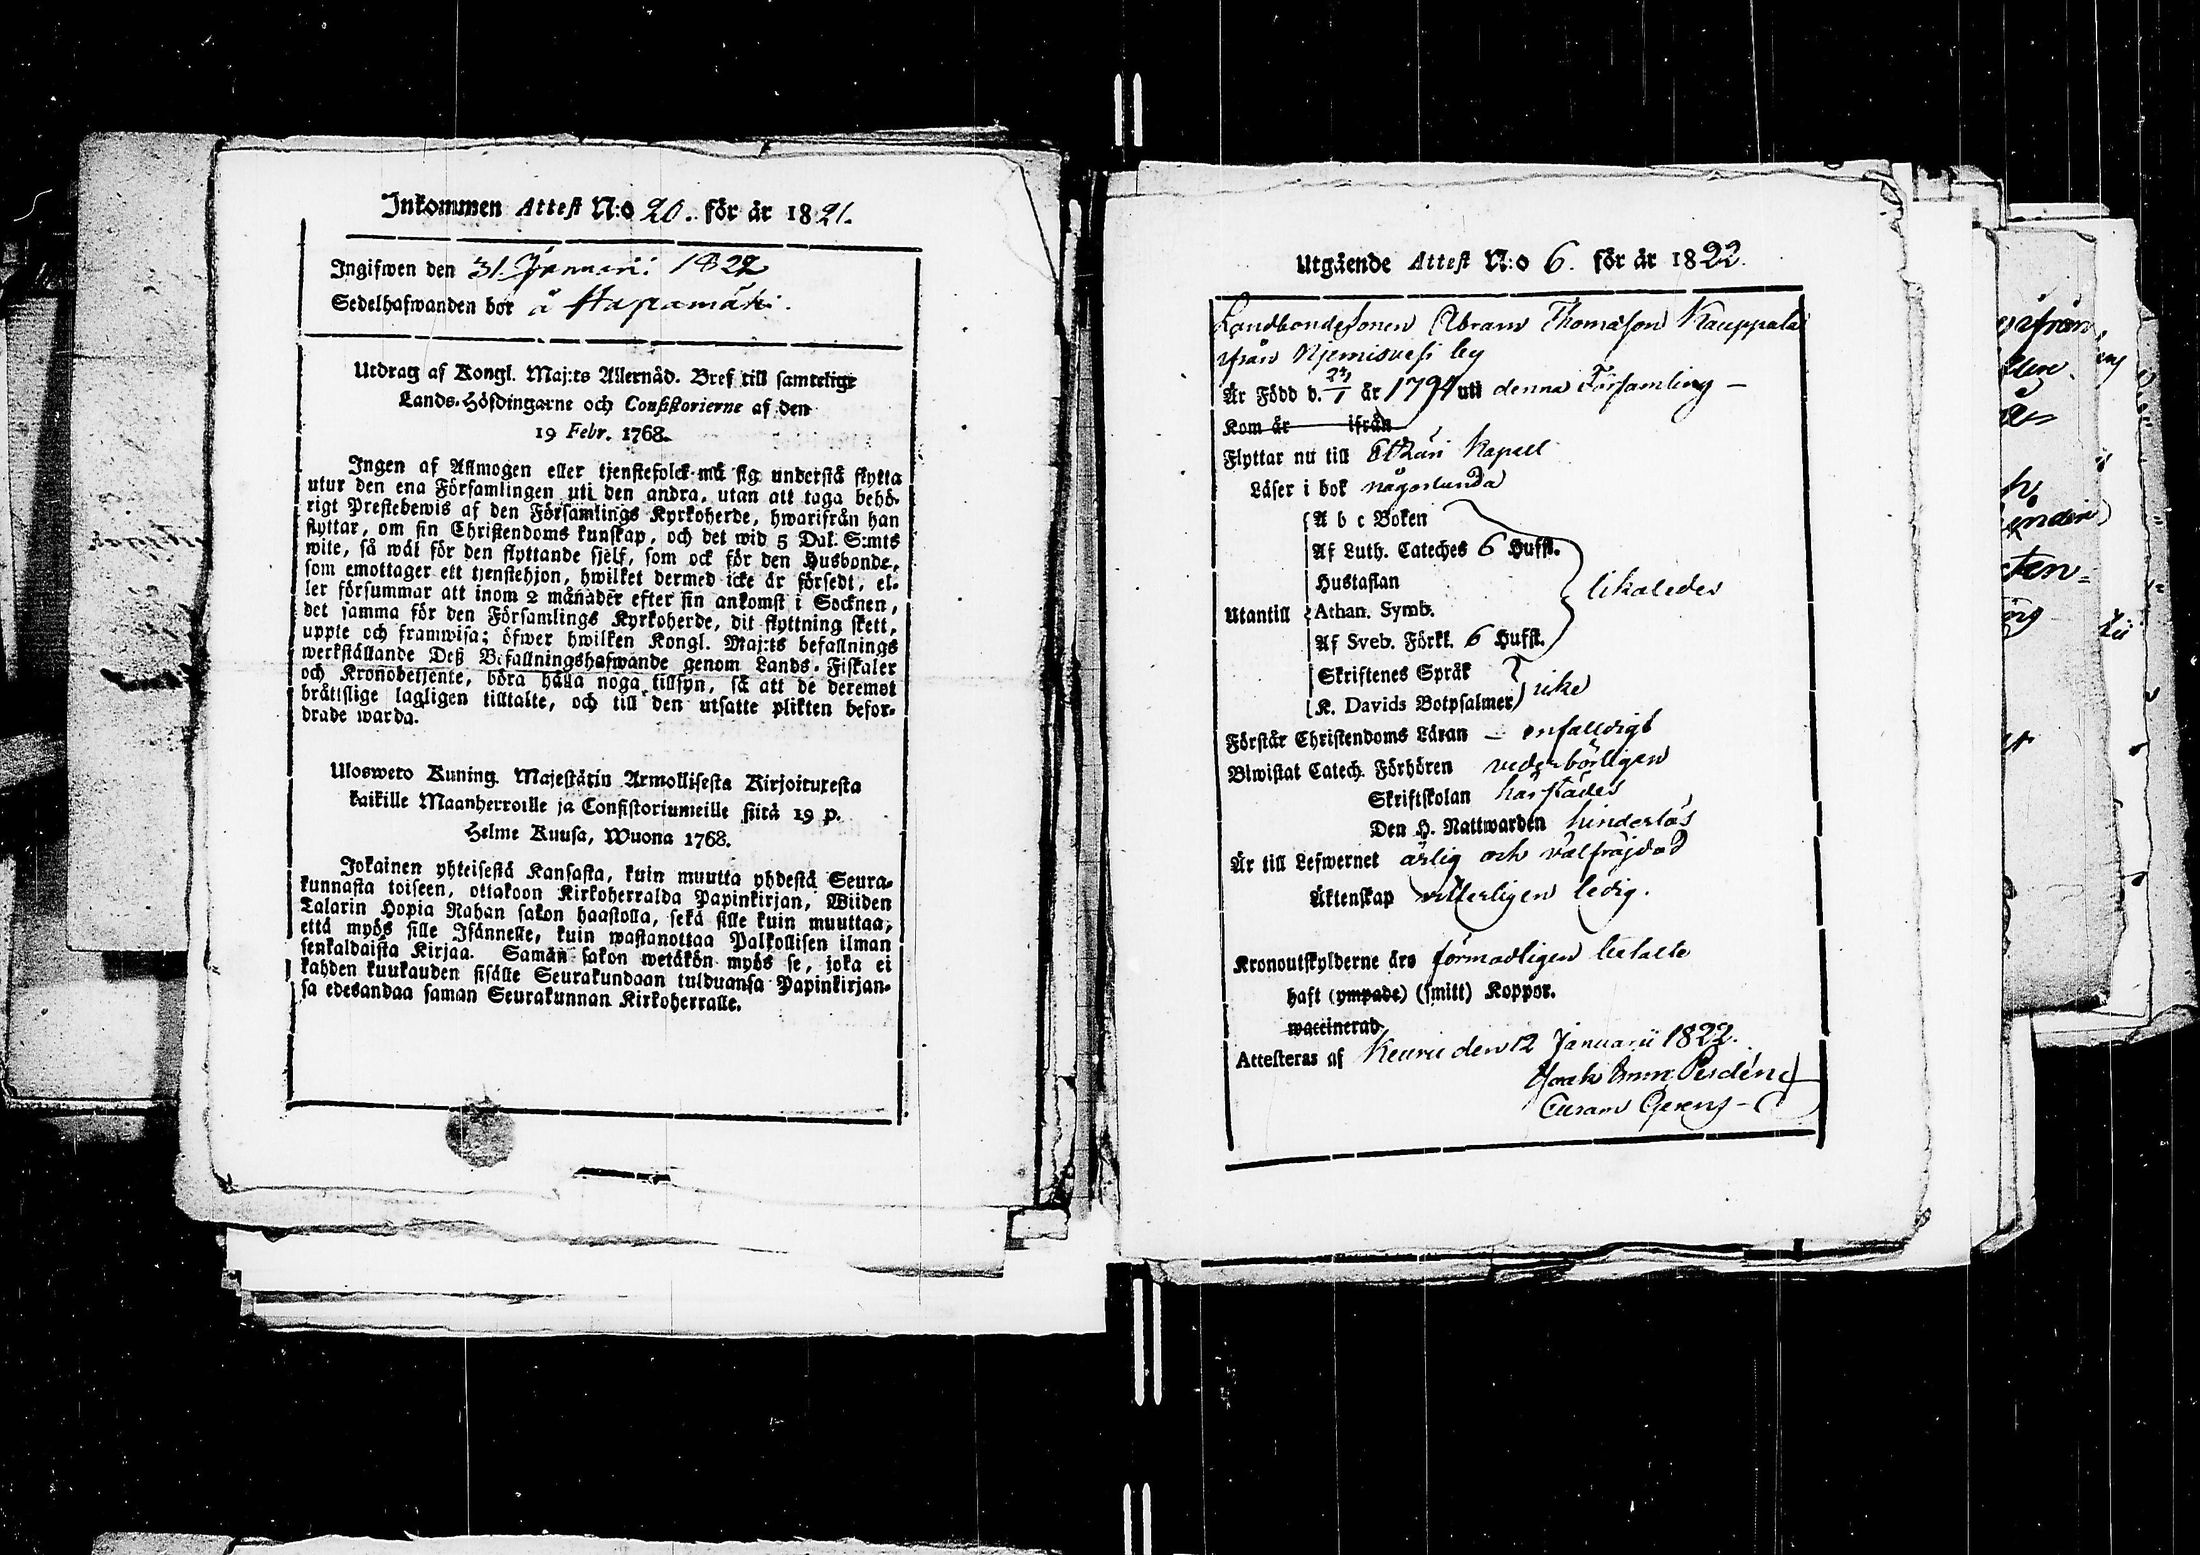 Inkommen Attest N:o 20. för år 1821.
Ingifwen den 31. Januarii 1822
Sedelhafwanden bor å Haparnäki.
Utdrag af Kongl. Maj:ts Allernåd. Bref till samtelige
Lands-Höfdingarne och Consistorierne af den
19 Febr. 1768.
Ingen af Allmogen eller tjenstefolck må sig understå flytta
utur den ena Församlingen uti den andra, utan att taga behö-
rigt Prestebewis af den Församlings Kyrkoherde, hwarifrån han
flyttar, om sin Christendoms kunskap, och det wid 5 Dal. S:mts
wite, så wäl för den flyttande sjelf, som ock för den Husbonde,
som emottager ett tjenstehjon, hwilket dermed icke är försedt, el-
ler försummar att inom 2 månader efter sin ankomst i Socknen,
det samma för den Församlings Kyrkoherde, dit flyttning skett,
uppte och framwisa; öfwer hwilken Kongl. Maj:ts befallnings
werkställande Deß Befallningshafwande genom Lands-Fiskaler
och Kronobetjente, böra hålla noga tillsyn, så att de deremot
bråttslige lagligen tilltalte, och till den utsatte plikten befor-
drade warda.
Ulosweto Kuning. Majestätin Armollisesta Kirjoituxesta
kaikille Maanherroille ja Consistoriumeille siitä 19 p.
Helme Kuusa, Wuona 1768.
Jokainen yhteisestä Kansasta, kuin muutta yhdestä Seura-
kunnasta toiseen, ottakoon Kirkoherralda Papinkirjan, Wiiden
Talarin Hopia Rahan sakon haastolla, sekä sille kuin muuttaa,
että myös sille Isännelle, kuin wastanottaa Palkollisen ilman
senkaldaista Kirjaa. Samän sakon wetäkön myös se, joka ei
kahden kuukauden sisälle Seurakundaan tulduansa Papinkirjan-
sa edesandaa saman Seurakunnan Kirkoherralle.
Utgående Attest N:o 6. för år 1822.
Landbondesonen Abram Thomasson Kauppala
ifrån Njemisvesi by
Är Född d. 1 år 1794 uti denna Församling –
Kom år ifrån
Flyttar nu till Etzäri Kapell
Läser i bok någorlunda
A b c Boken
Af Luth. Cateches 6 Hufst.
Hustaflan likaledes
Utantill Athan. Symb.
Af Sveb. Förkl. 6 Hufst.
Skriftenes Språk
K. Davids Botpsalmer icke
Förstår Christendoms Läran – enfalldigt
Biwistat Catech. Förhören vederbörligen
Skriftskolan härstädes
Den H. Nattwarden hinderlös
Är till Lefwernet ärlig och välfräjdad
Äktenskap vitterligen ledig.
Kronoutskylderne äro förmodligen betalte
haft (ympade) (smitt) Koppor.
waccinerad
Attesteras af Keuru den 12 Januarii 1822.